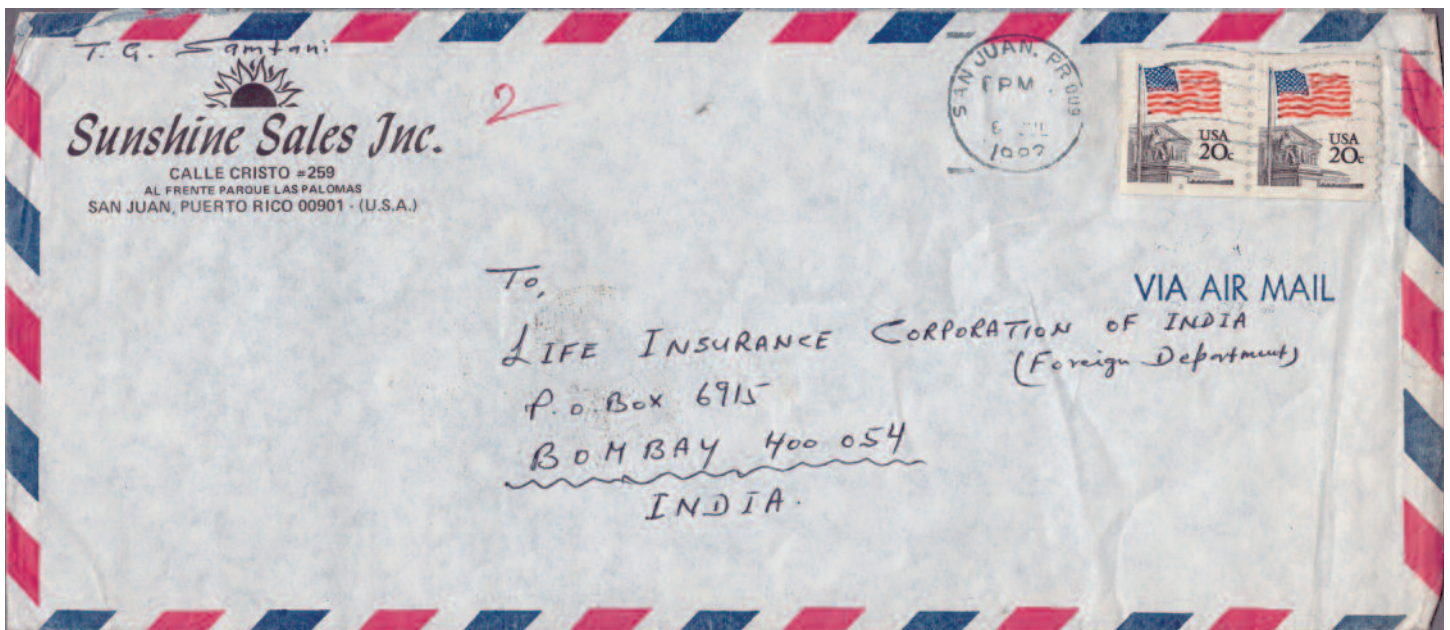 T. G. Samtani
Sunshine Sales Inc.
CALLE CRISTO #259
AL FRENTE PARQUE LAS PALOMAS
SAN JUAN, PUERTO RICO 00901 - (U.S.A.)
2
SAN JUAN, PR 009
PM
6 JUL
USA
20c
USA
20c
VIA AIR MAIL
To,
LIFE INSURANCE CORPORATION OF INDIA
(Foreign Department)
P.O. BOX 6915
BOMBAY 400 054
INDIA.